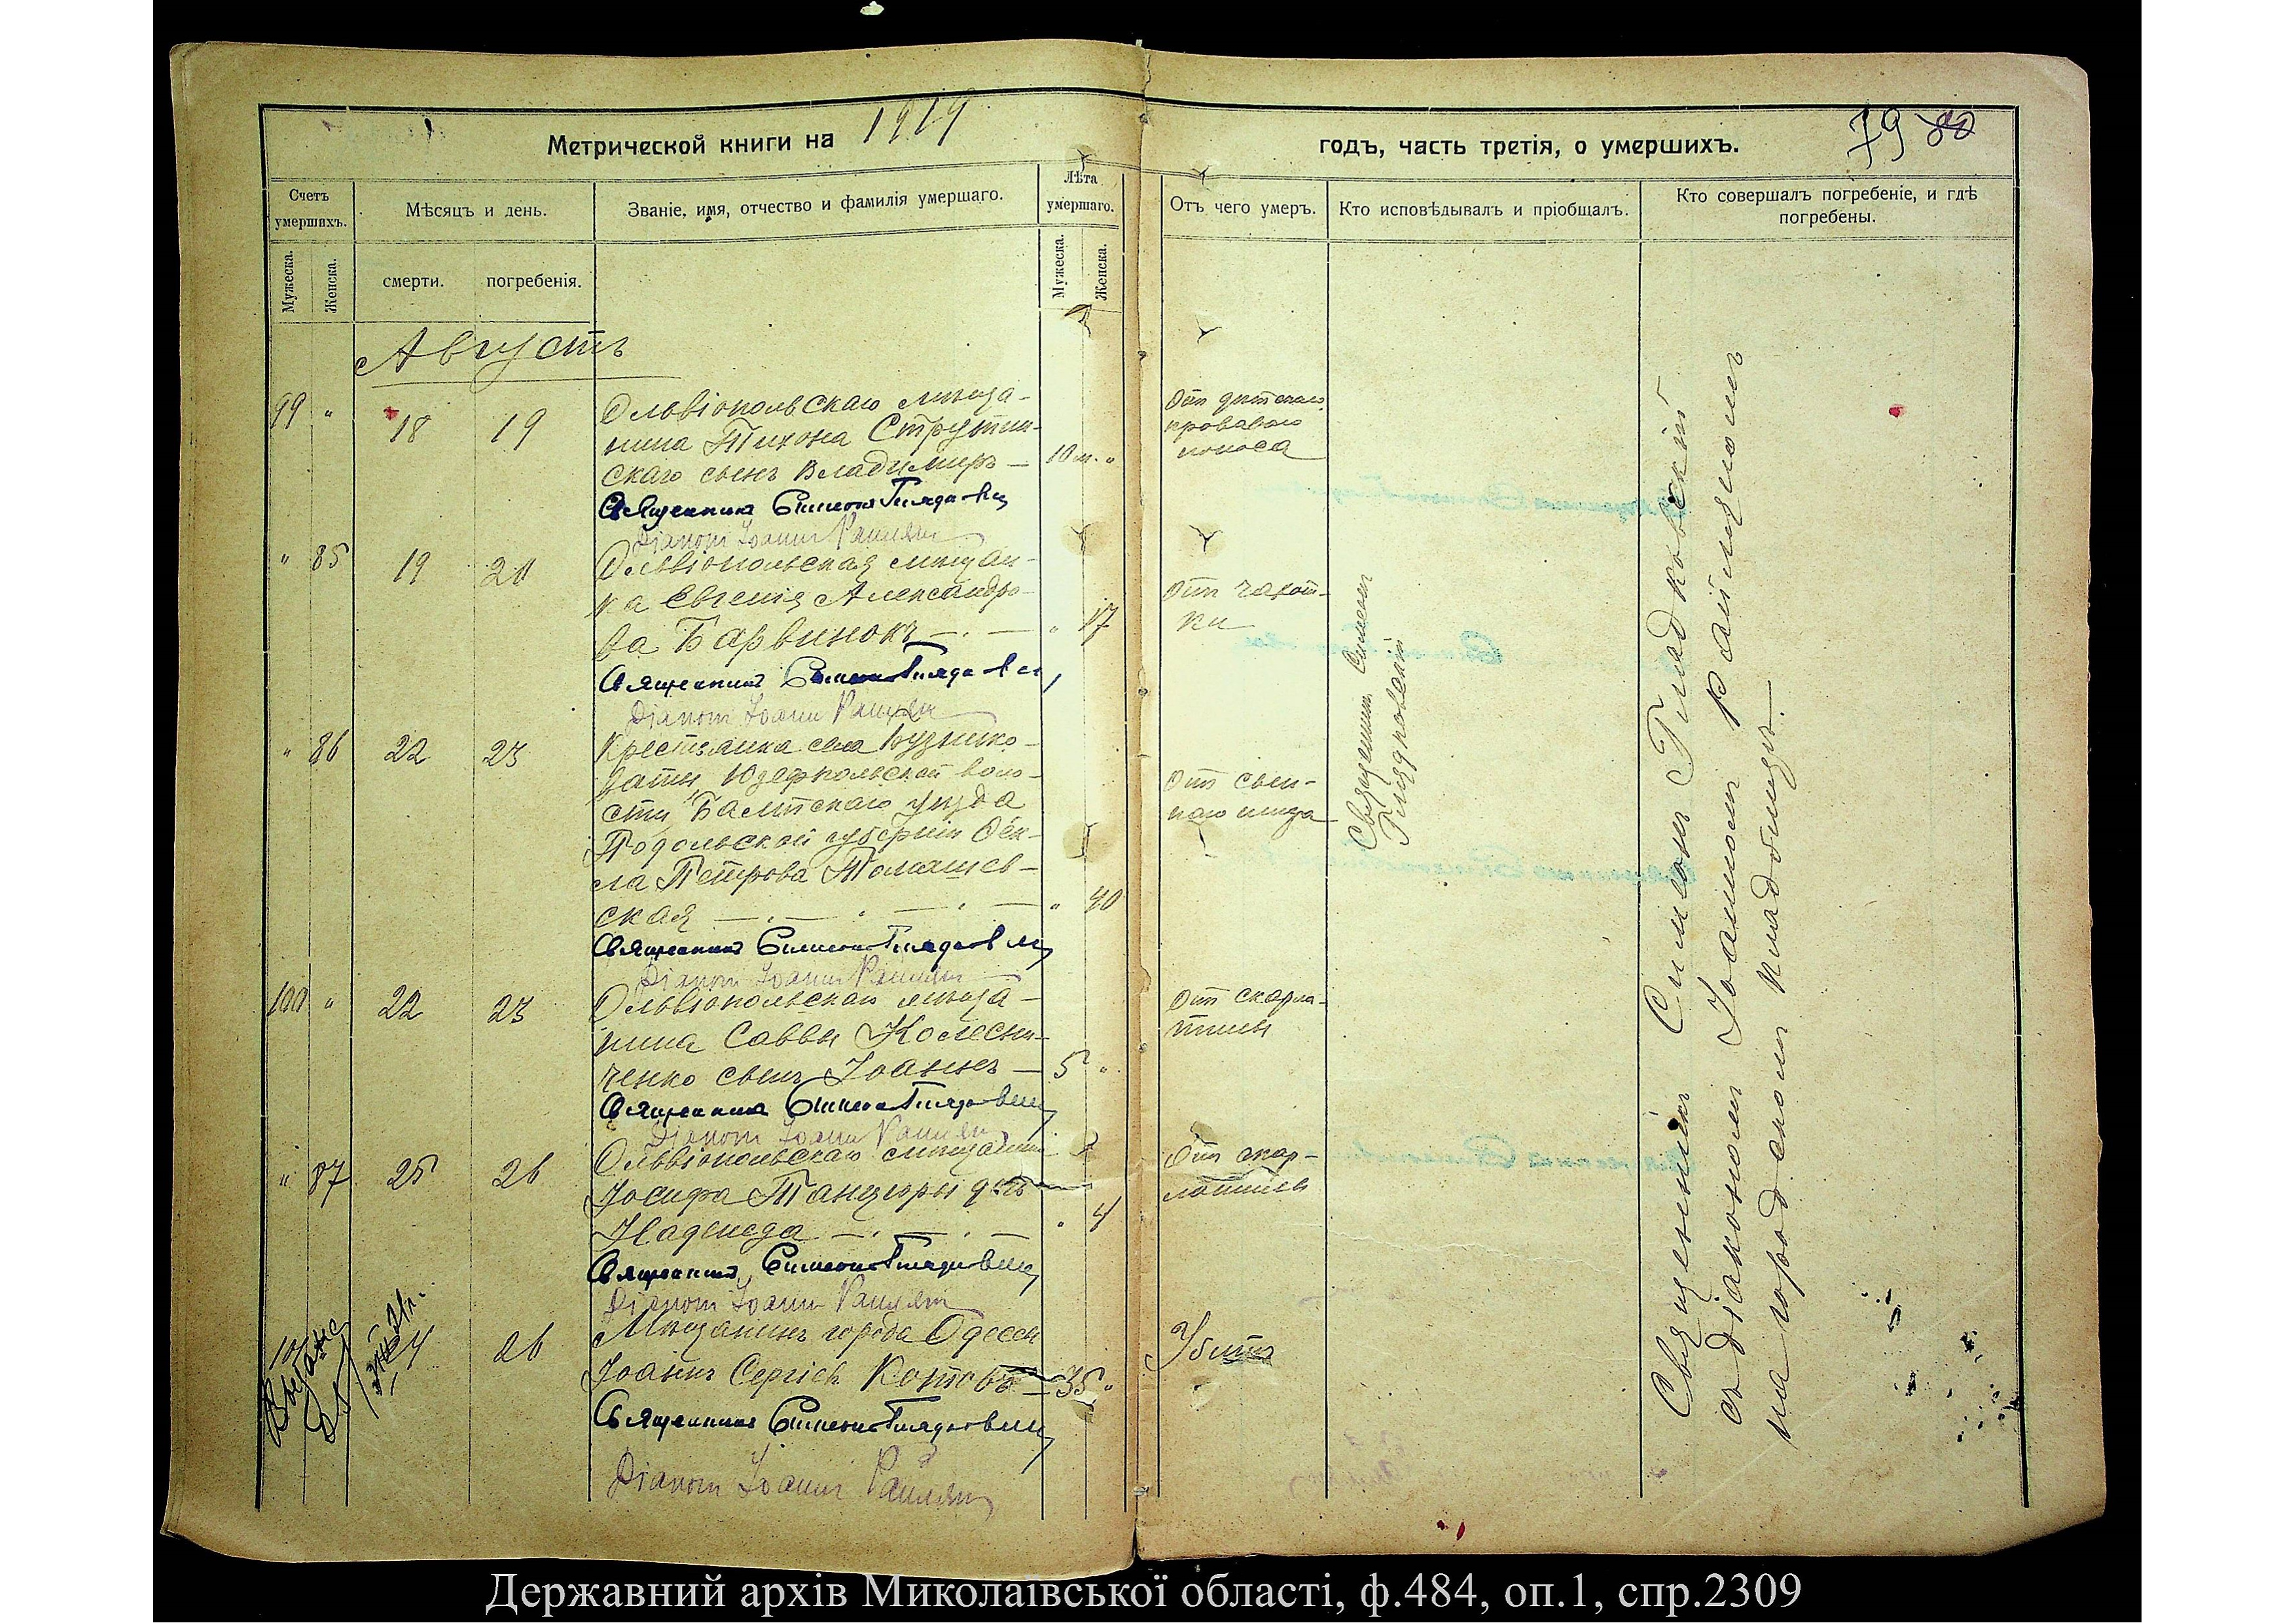 Метрической книги на 1919
годъ, часть третія, о умершихъ.
79 80
Счетъ умершихъ.
Мѣсяцъ и день.
Званіе, имя, отчество и фамилія умершаго.
Лѣта умершаго.
Отъ чего умеръ.
Кто исповѣдывалъ и пріобщалъ.
Кто совершалъ погребеніе, и гдѣ
погребены.
Мужеска.
Женска.
смерти.
погребенія.
Мужеска.
Женска.
Августъ
99 " 18 19
Ольвіопольскаго мѣща-
нина Тихона Струтин-
скаго сынъ Владимиръ — 10 м. "
Отъ дѣтскаго
кроваваго
поноса
Священникъ Симеонъ
Діаконъ Іоаннъ
" 85 19 20
Ольвіопольская мѣщан-
ка Евгенія Александро-
ва Барвинокъ — " 17
Отъ чахот-
ки
Священникъ Симеонъ
Діаконъ Іоаннъ
" 86 22 23
Крестьянка села
Юзефпольской воло-
сти Балтскаго уѣзда
Подольской губерніи Ѳек-
ла Петрова Томашев-
ская — " 40
Отъ сып-
наго тифа
Священникъ Симеонъ
Діаконъ Іоаннъ
100 " 22 23
Ольвіопольскаго мѣща-
нина Саввы Колесни-
ченко сынъ Іоаннъ — 5 "
Отъ скарла-
тины
Священникъ Симеонъ
Діаконъ Іоаннъ
" 87 25 26
Ольвіопольскаго мѣщанина
Іосифа Танцюры дочь
Надежда — " 4
Отъ скар-
латины
Священникъ Симеонъ
Діаконъ Іоаннъ
101 24 26
Мѣщанинъ города Одессы
Іоаннъ Сергіевъ Котовъ — 35 "
Убитъ
Священникъ Симеонъ
Діаконъ Іоаннъ
Священникъ Симеонъ
Гладковскій
Священникъ Симеонъ Гладковскій
съ діакономъ Іоанномъ
на городскомъ кладбищѣ.
Державний архів Миколаївської області, ф.484, оп.1, спр.2309